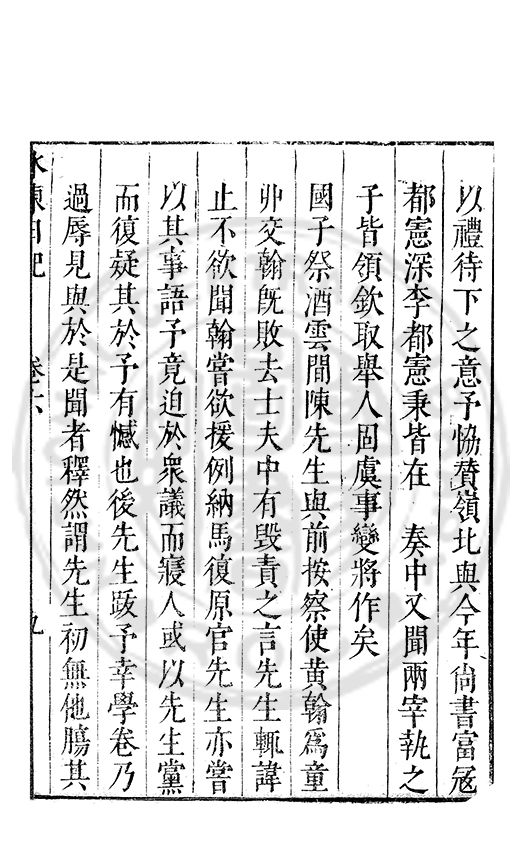 以禮待下之意予恊賛嶺北與今年尙書富冦
都憲深李都憲秉皆在　奏中又聞兩宰執之
子皆領欽取舉人固虞事變將作矣
國子祭酒雲間陳先生與前按察使黄翰爲童
丱交翰旣敗去士夫中有毁責之言先生輒諱
止不欲聞翰嘗欲援例納馬復原官先生亦嘗
以其事語予竟迫於衆議而寢人或以先生黨
而復疑其於予有憾也後先生跋予幸學卷乃
過辱見與於是聞者釋然謂先生初無他膓其
水東日記　卷六　九